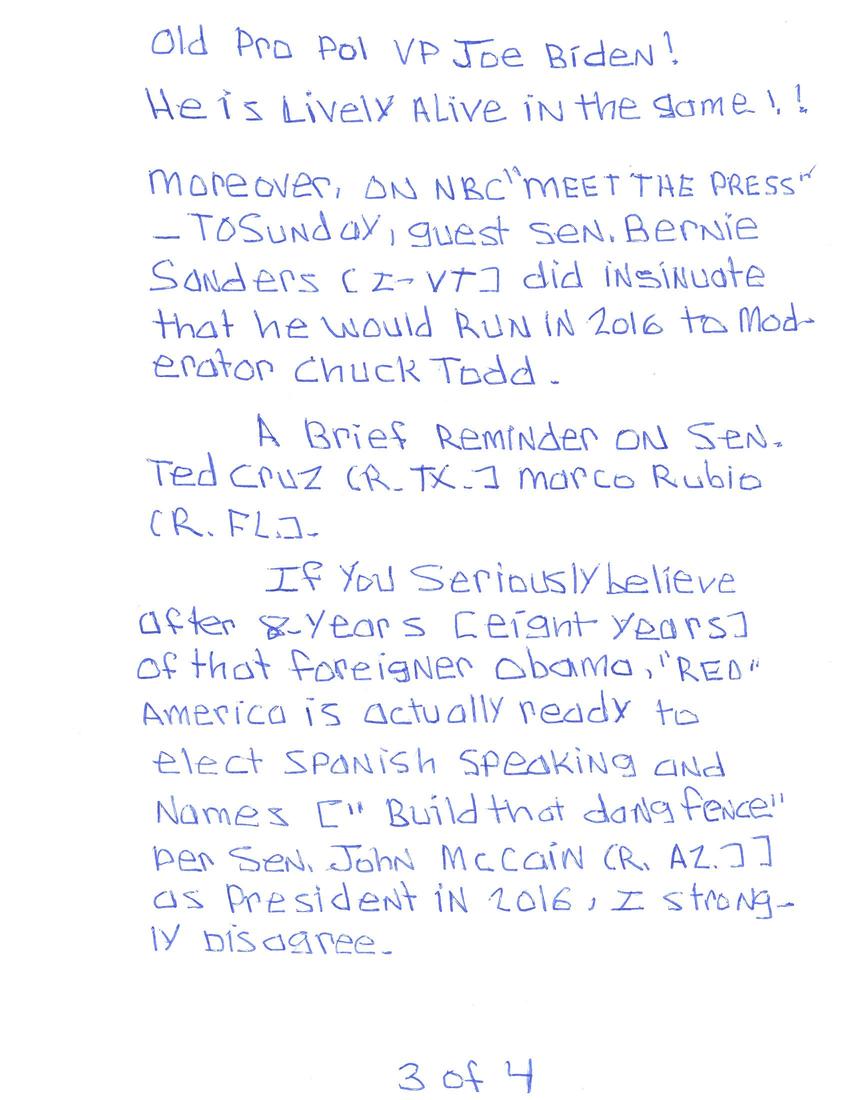 Old Pro Pol VP Joe Biden!
He is Lively Alive in the game!!
Moreover, ON NBC "MEET THE PRESS"
— TOSUNday, guest SEN. Bernie
Sanders [I-VT] did insinuate
that he would RUN IN 2016 to Mod-
erator Chuck Todd.
A Brief Reminder ON Sen.
Ted Cruz [R. TX.] Marco Rubio
[R. FL.].
If You Seriously believe
after 8-Years [eight years]
of that foreigner Obama, "RED"
America is actually ready to
elect Spanish Speaking and
Names [" Build that dang fence"
per Sen. John McCain [R. AZ.]]
as President in 2016, I strong-
ly Disagree.
3 of 4